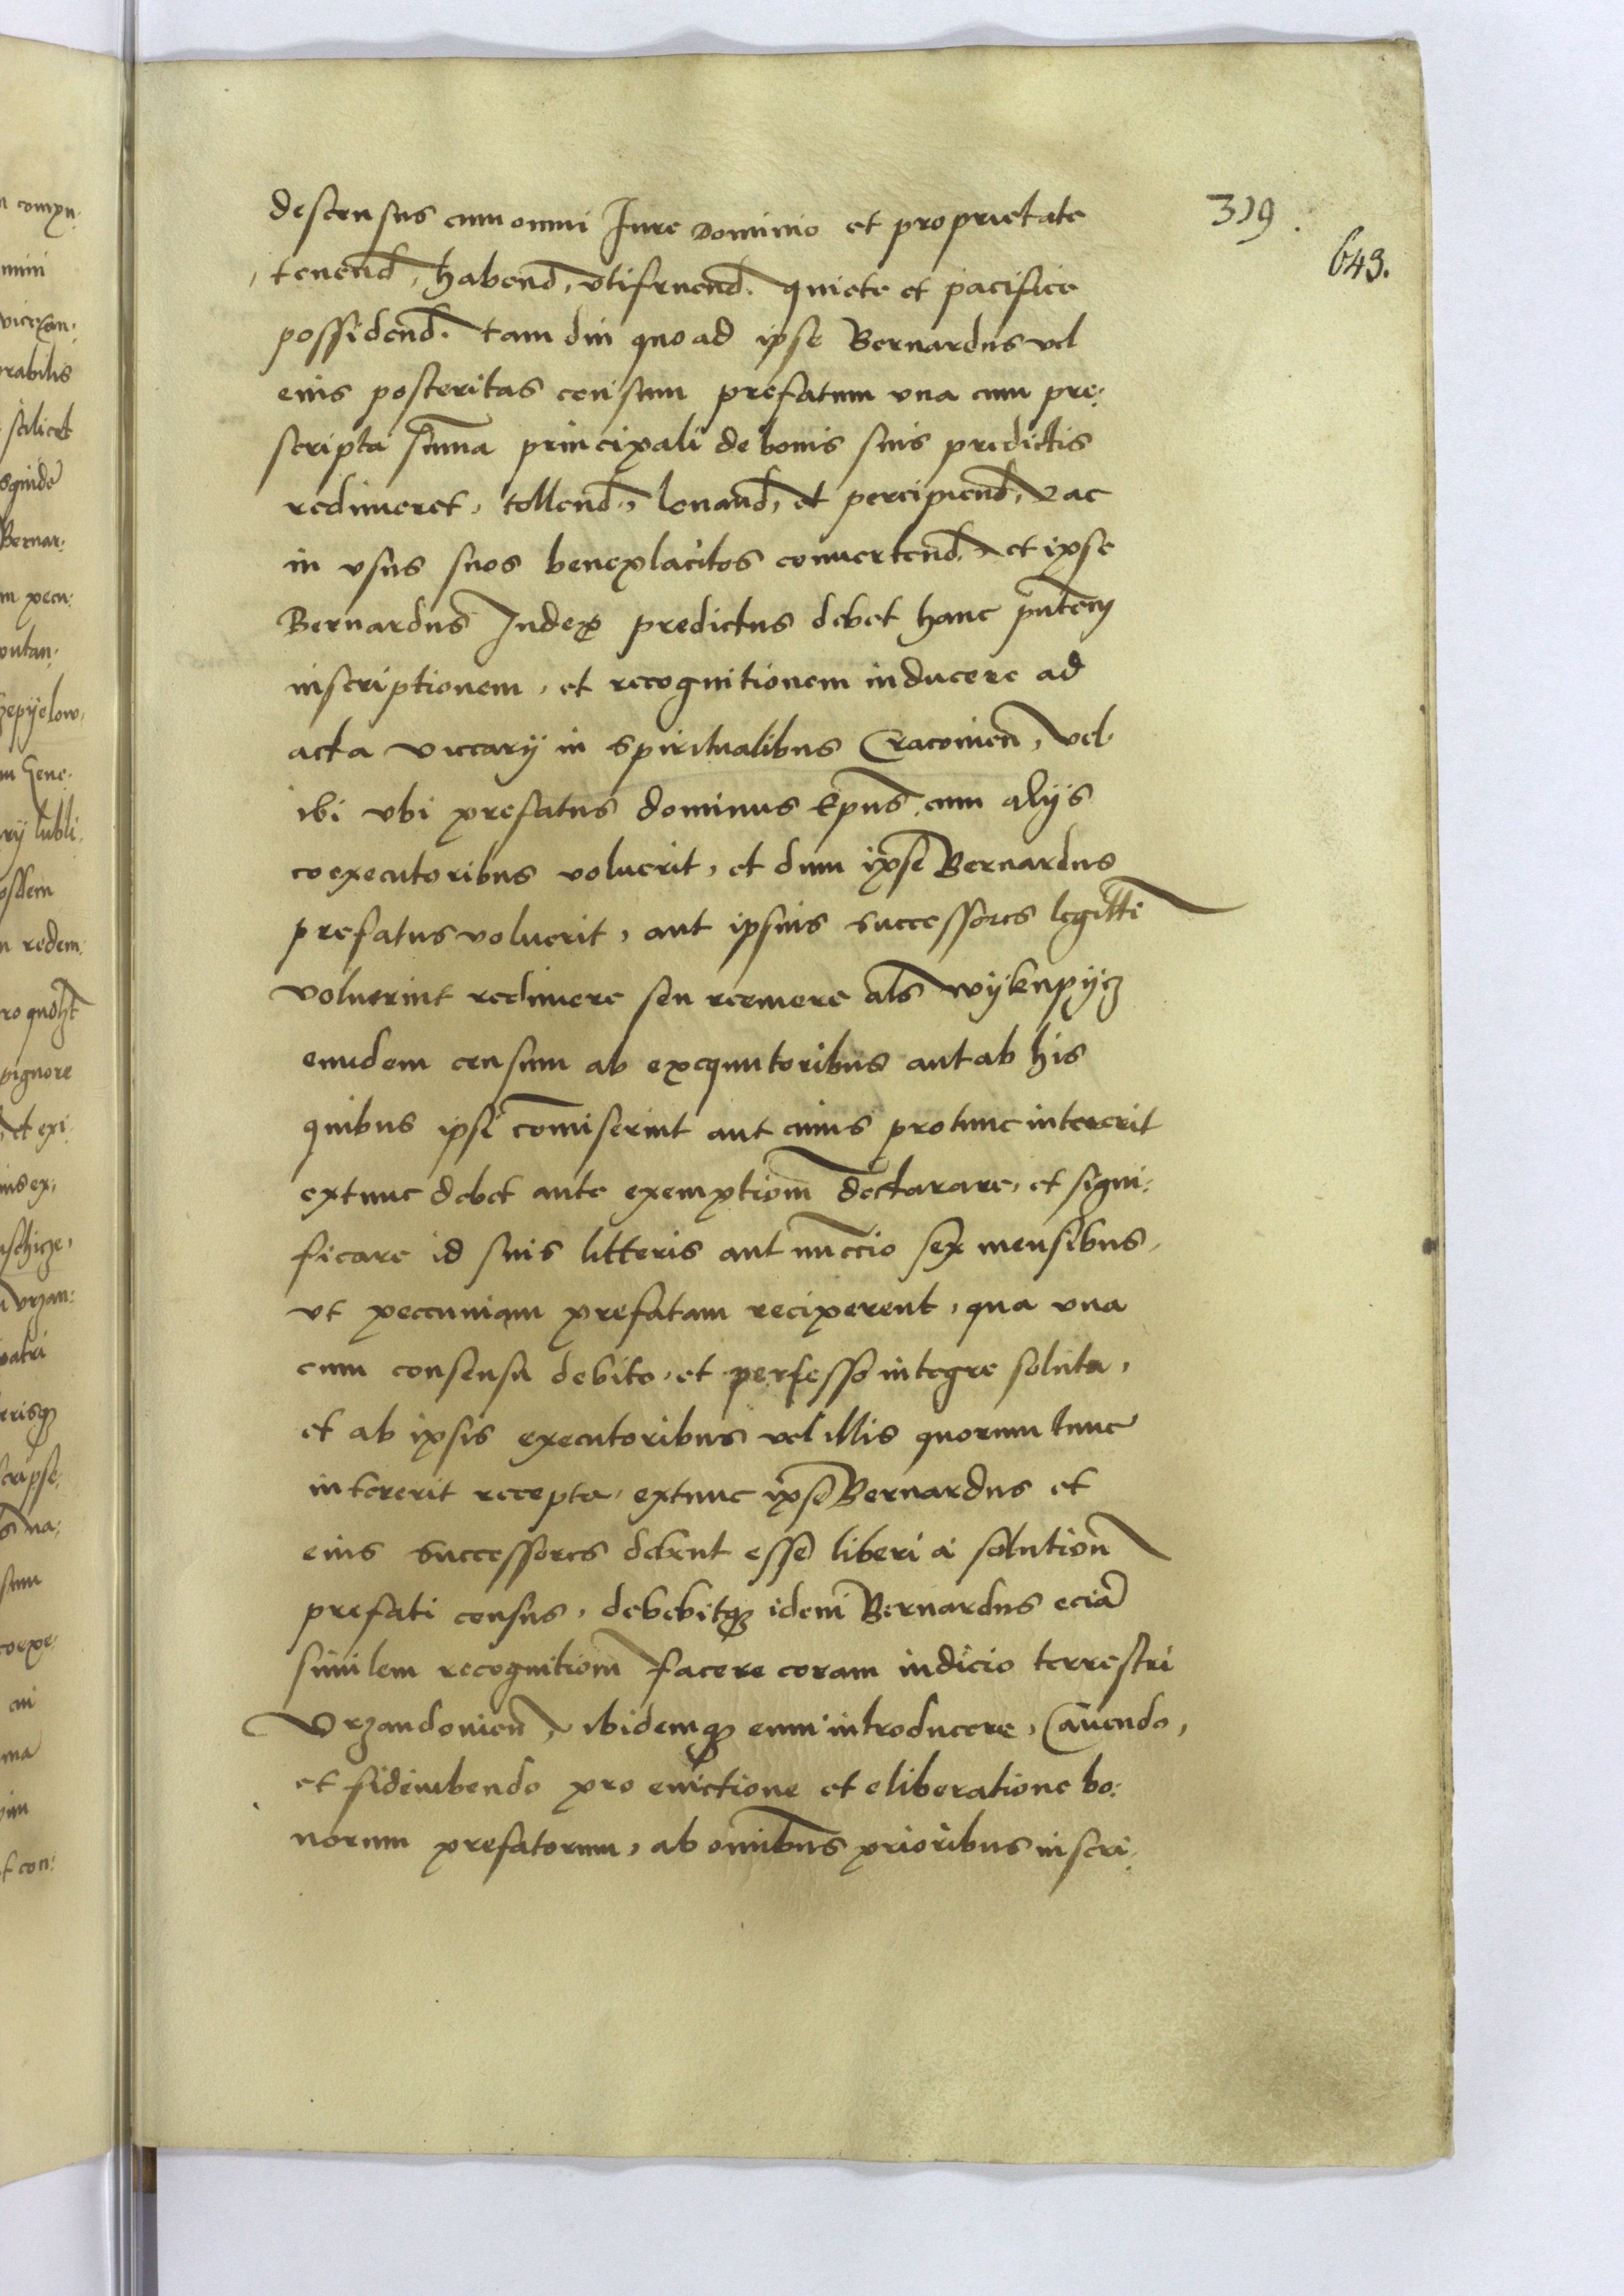 319.
643.
descensus cum omni Iure Dominio et proprietate
tenend, habend, vtifruend. quiete et pacifice
possidend. tam diu quo ad ipse Bernardus vel
eius posteritas censum prefatum vna cum pre:
scripta suma principali de bonis suis predictis
redimeret, tollend, leuand, et percipiend, ac
in vsus suos beneplacitos conuertend, et ipse
Bernardus Iudex predictus debet hanc pntem
inscriptionem, et recognitionem inducere ad
acta viccarij in spiritualibus Cracouien, vel
ibi vbi prefatus dominus Epus, cum alijs
coexecutoribus voluerit, et dum ipse Bernardus
prefatus voluerit, aut ipsius successores legitti
voluerint redimere seu reemere als wykupycz
eundem censum ab exequutoribus aut ab his
quibus ipsi comiserint aut cuius protunc intererit
extunc debet ante exemptiom declarare, et signi:
ficare id suis litteris aut nuccio sex mensibus,
vt peccuniam prefatam reciperent, qua vna
cum consensu debito, et perfesso integre soluta,
et ab ipsis executoribus vel illis quorum tunc
intererit recepta, extunc ipse Bernardus et
eius successores debent esse liberi a solution
prefati census, debebitqz idem Bernardus ecia
similem recognitiom facere coram iudicio terrestri
Vrzandouien, ibidemqz eum introducere, Cauendo,
et fideiubendo pro euictione et eliberatione bo:
norum prefatorum, ab omibus prioribus inscri: